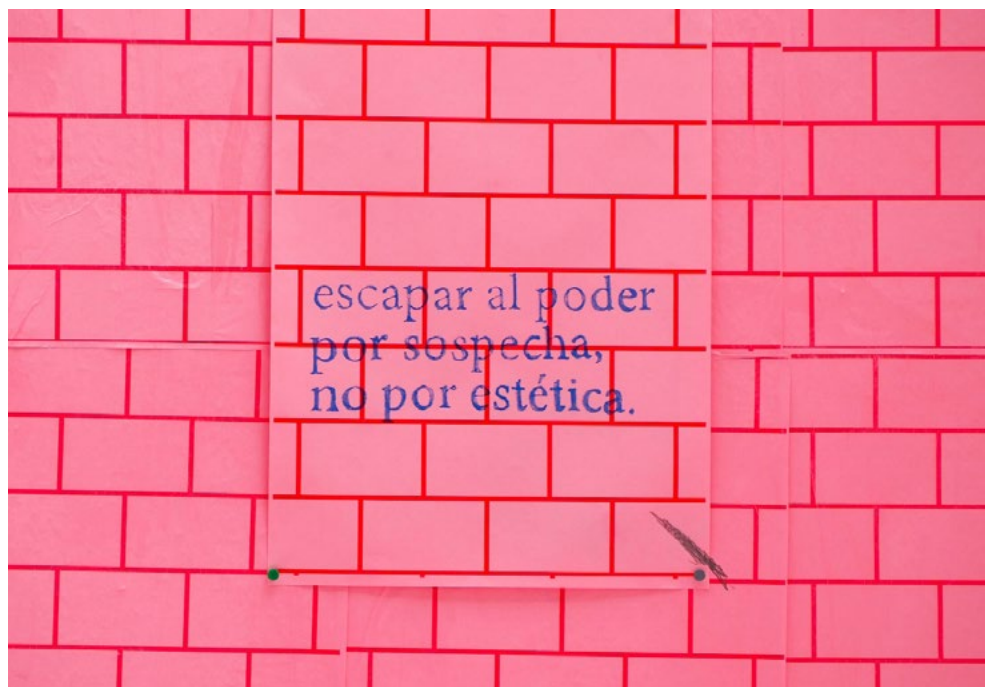 escapar al poder
por sospecha,
no por estética.